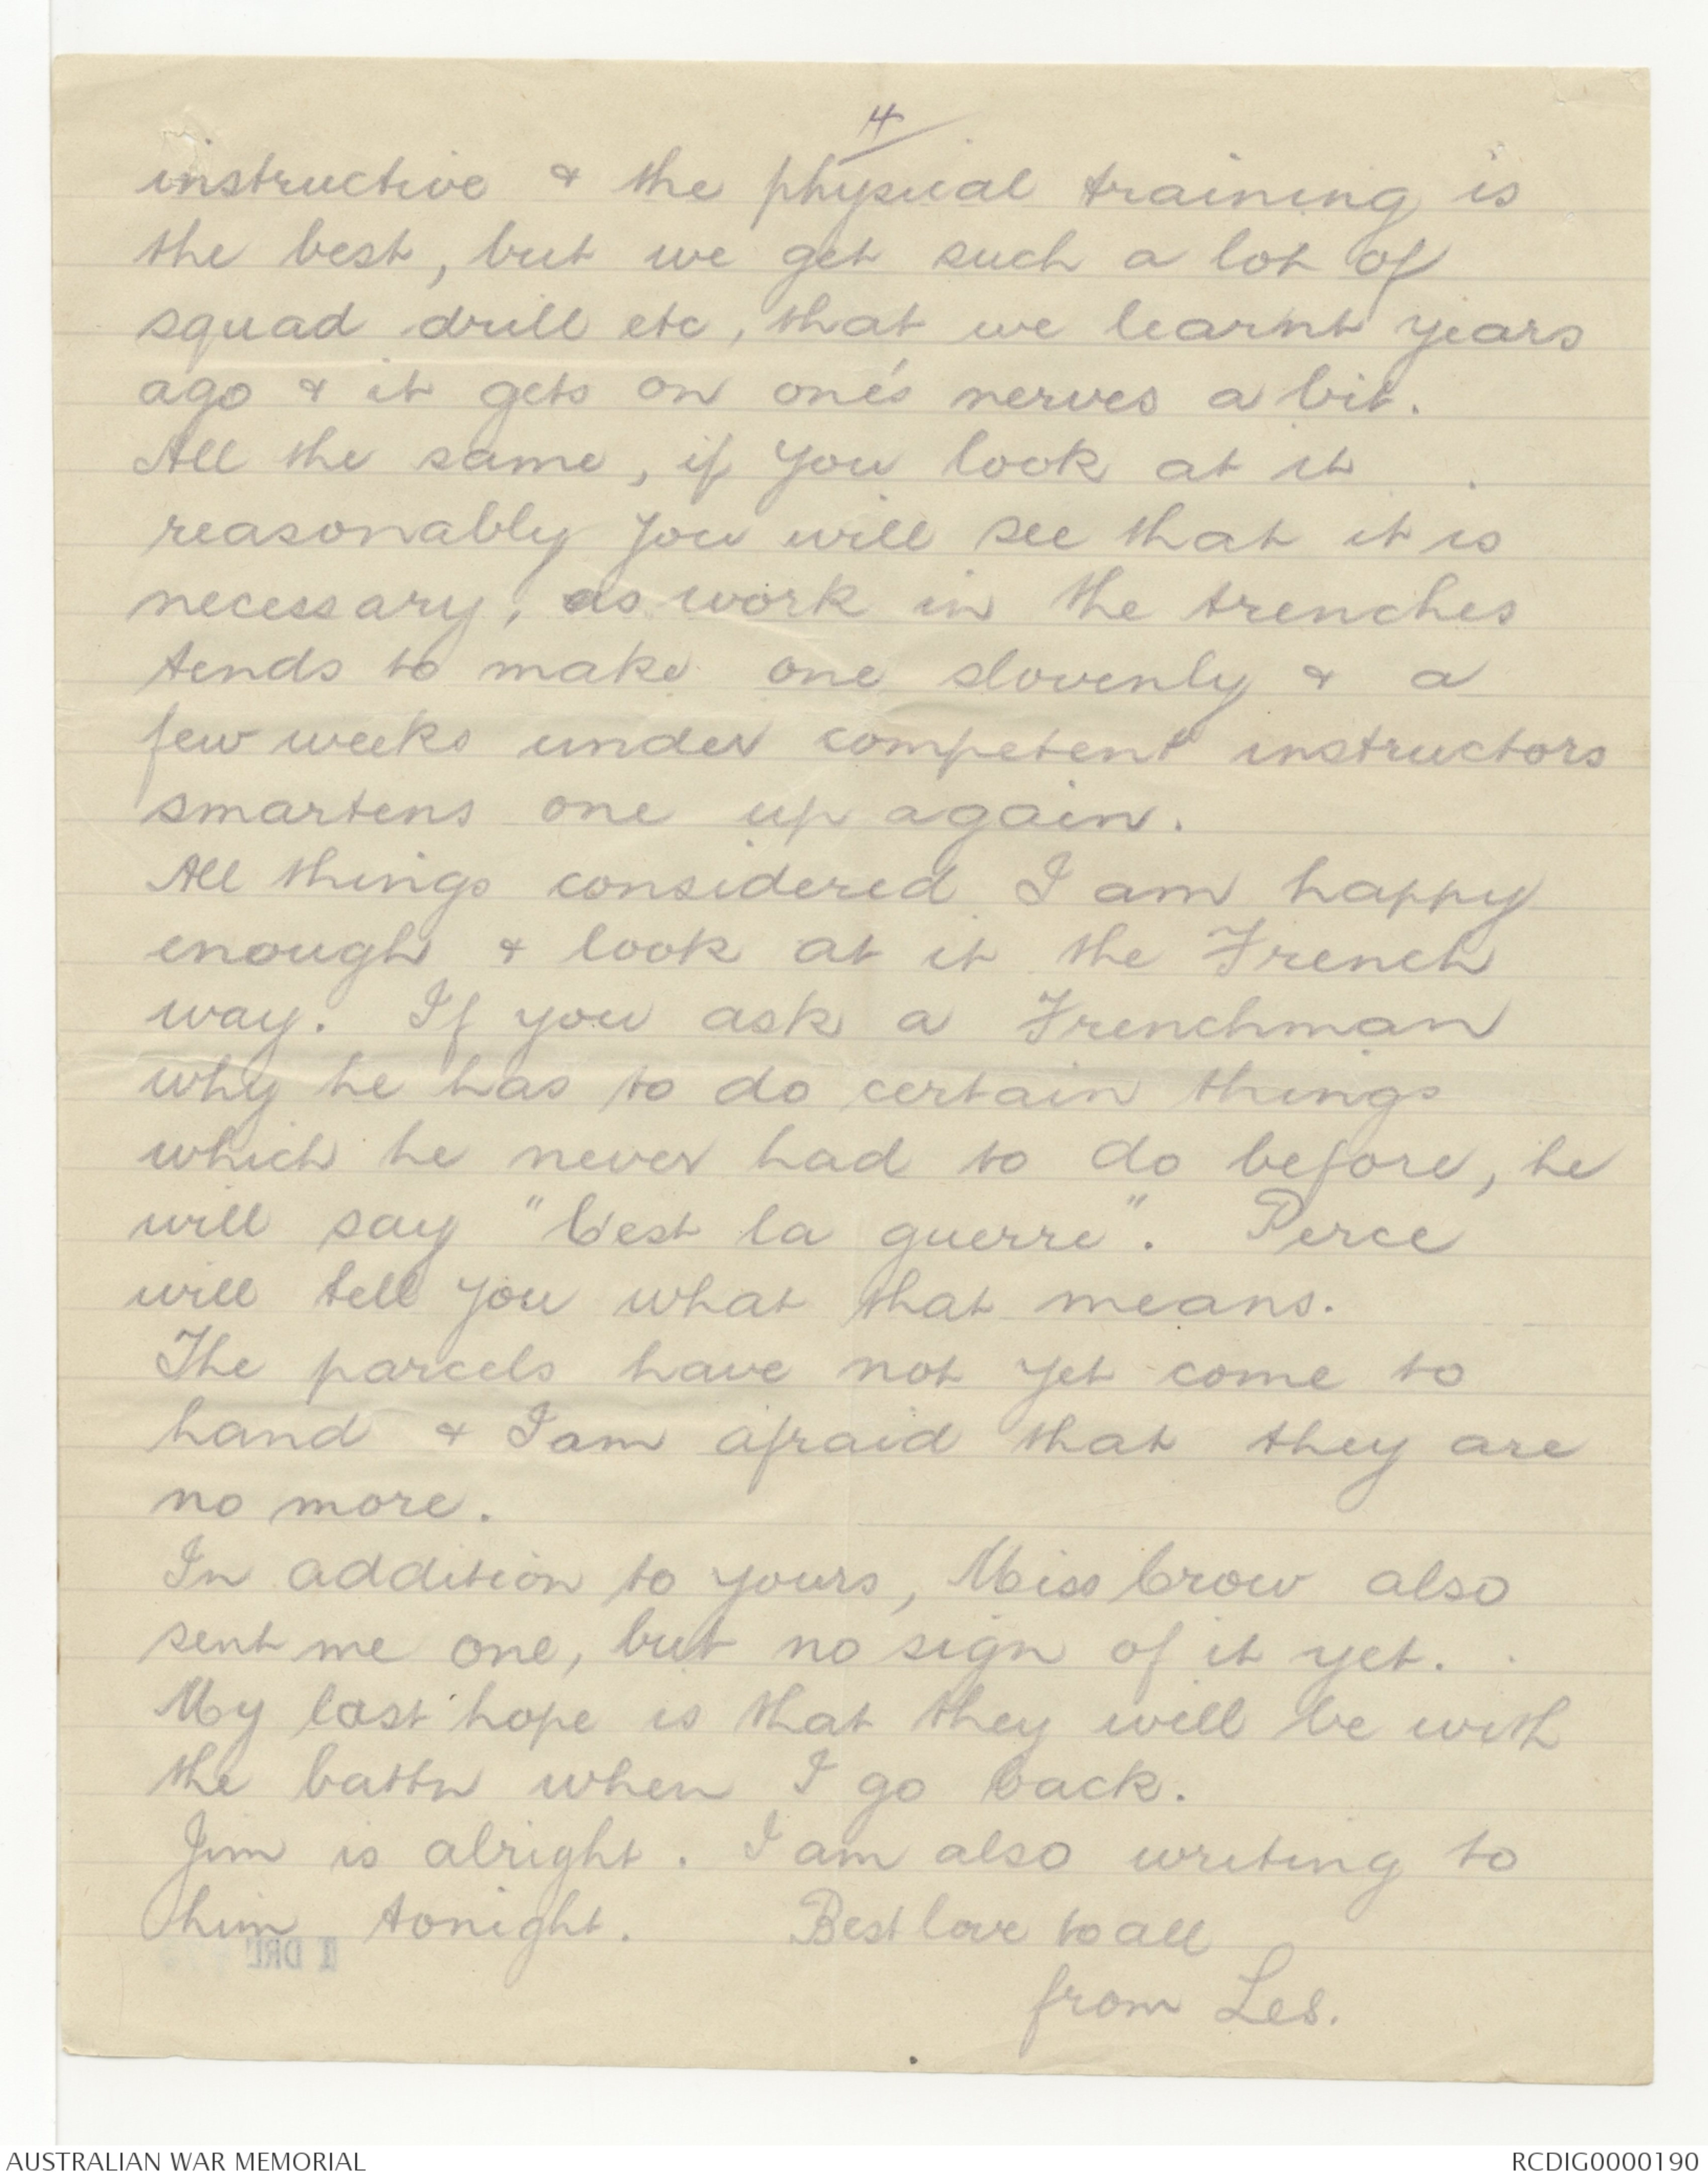 4
instructive & the physical training is
the best, but we get such a lot of
squad drill etc, that we learnt years
ago & it gets on one's nerves a bit.
All the same, if you look at it
reasonably you will see that it is
necessary, as work in the trenches
tends to make one slovenly & a
few weeks under competent instructors
smartens one up again.
All things considered I am happy
enough & look at it the French
way. If you ask a Frenchman
why he has to do certain things
which he never had to do before, he
will say "C'est la guerre". Perce
will tell you what that means.
The parcels have not yet come to
hand & I am afraid that they are
no more.
In addition to yours, Miss Crow also
sent me one, but no sign of it yet.
My last hope is that they will be with
the battn when I go back.
Jim is alright. I am also writing to
him tonight. Best love to all
from Les.
1 DRL
AUSTRALIAN WAR MEMORIAL
RCDIG0000190